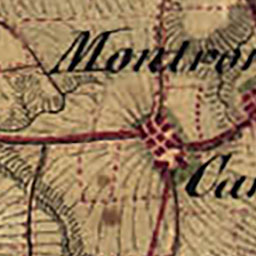 Montron
Car